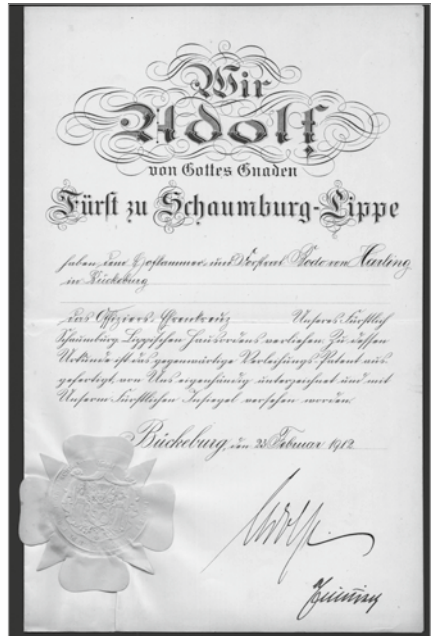 Wir
Adolf
von Gottes Gnaden
Fürst zu Schaumburg-Lippe
haben dem Hofkammer- und Forstrat Bodo von Harling
in Bückeburg
das Offiziers-Ehrenkreuz Unseres Fürstlich
Schaumburg-Lippischen Hausordens verliehen. Zu dessen
Urkunde ist das gegenwärtige Verleihungs-Patent aus-
gefertigt, von Uns eigenhändig unterzeichnet und mit
Unserm Fürstlichen Insiegel versehen worden.
Bückeburg, den 23. Februar 1912
Adolf.